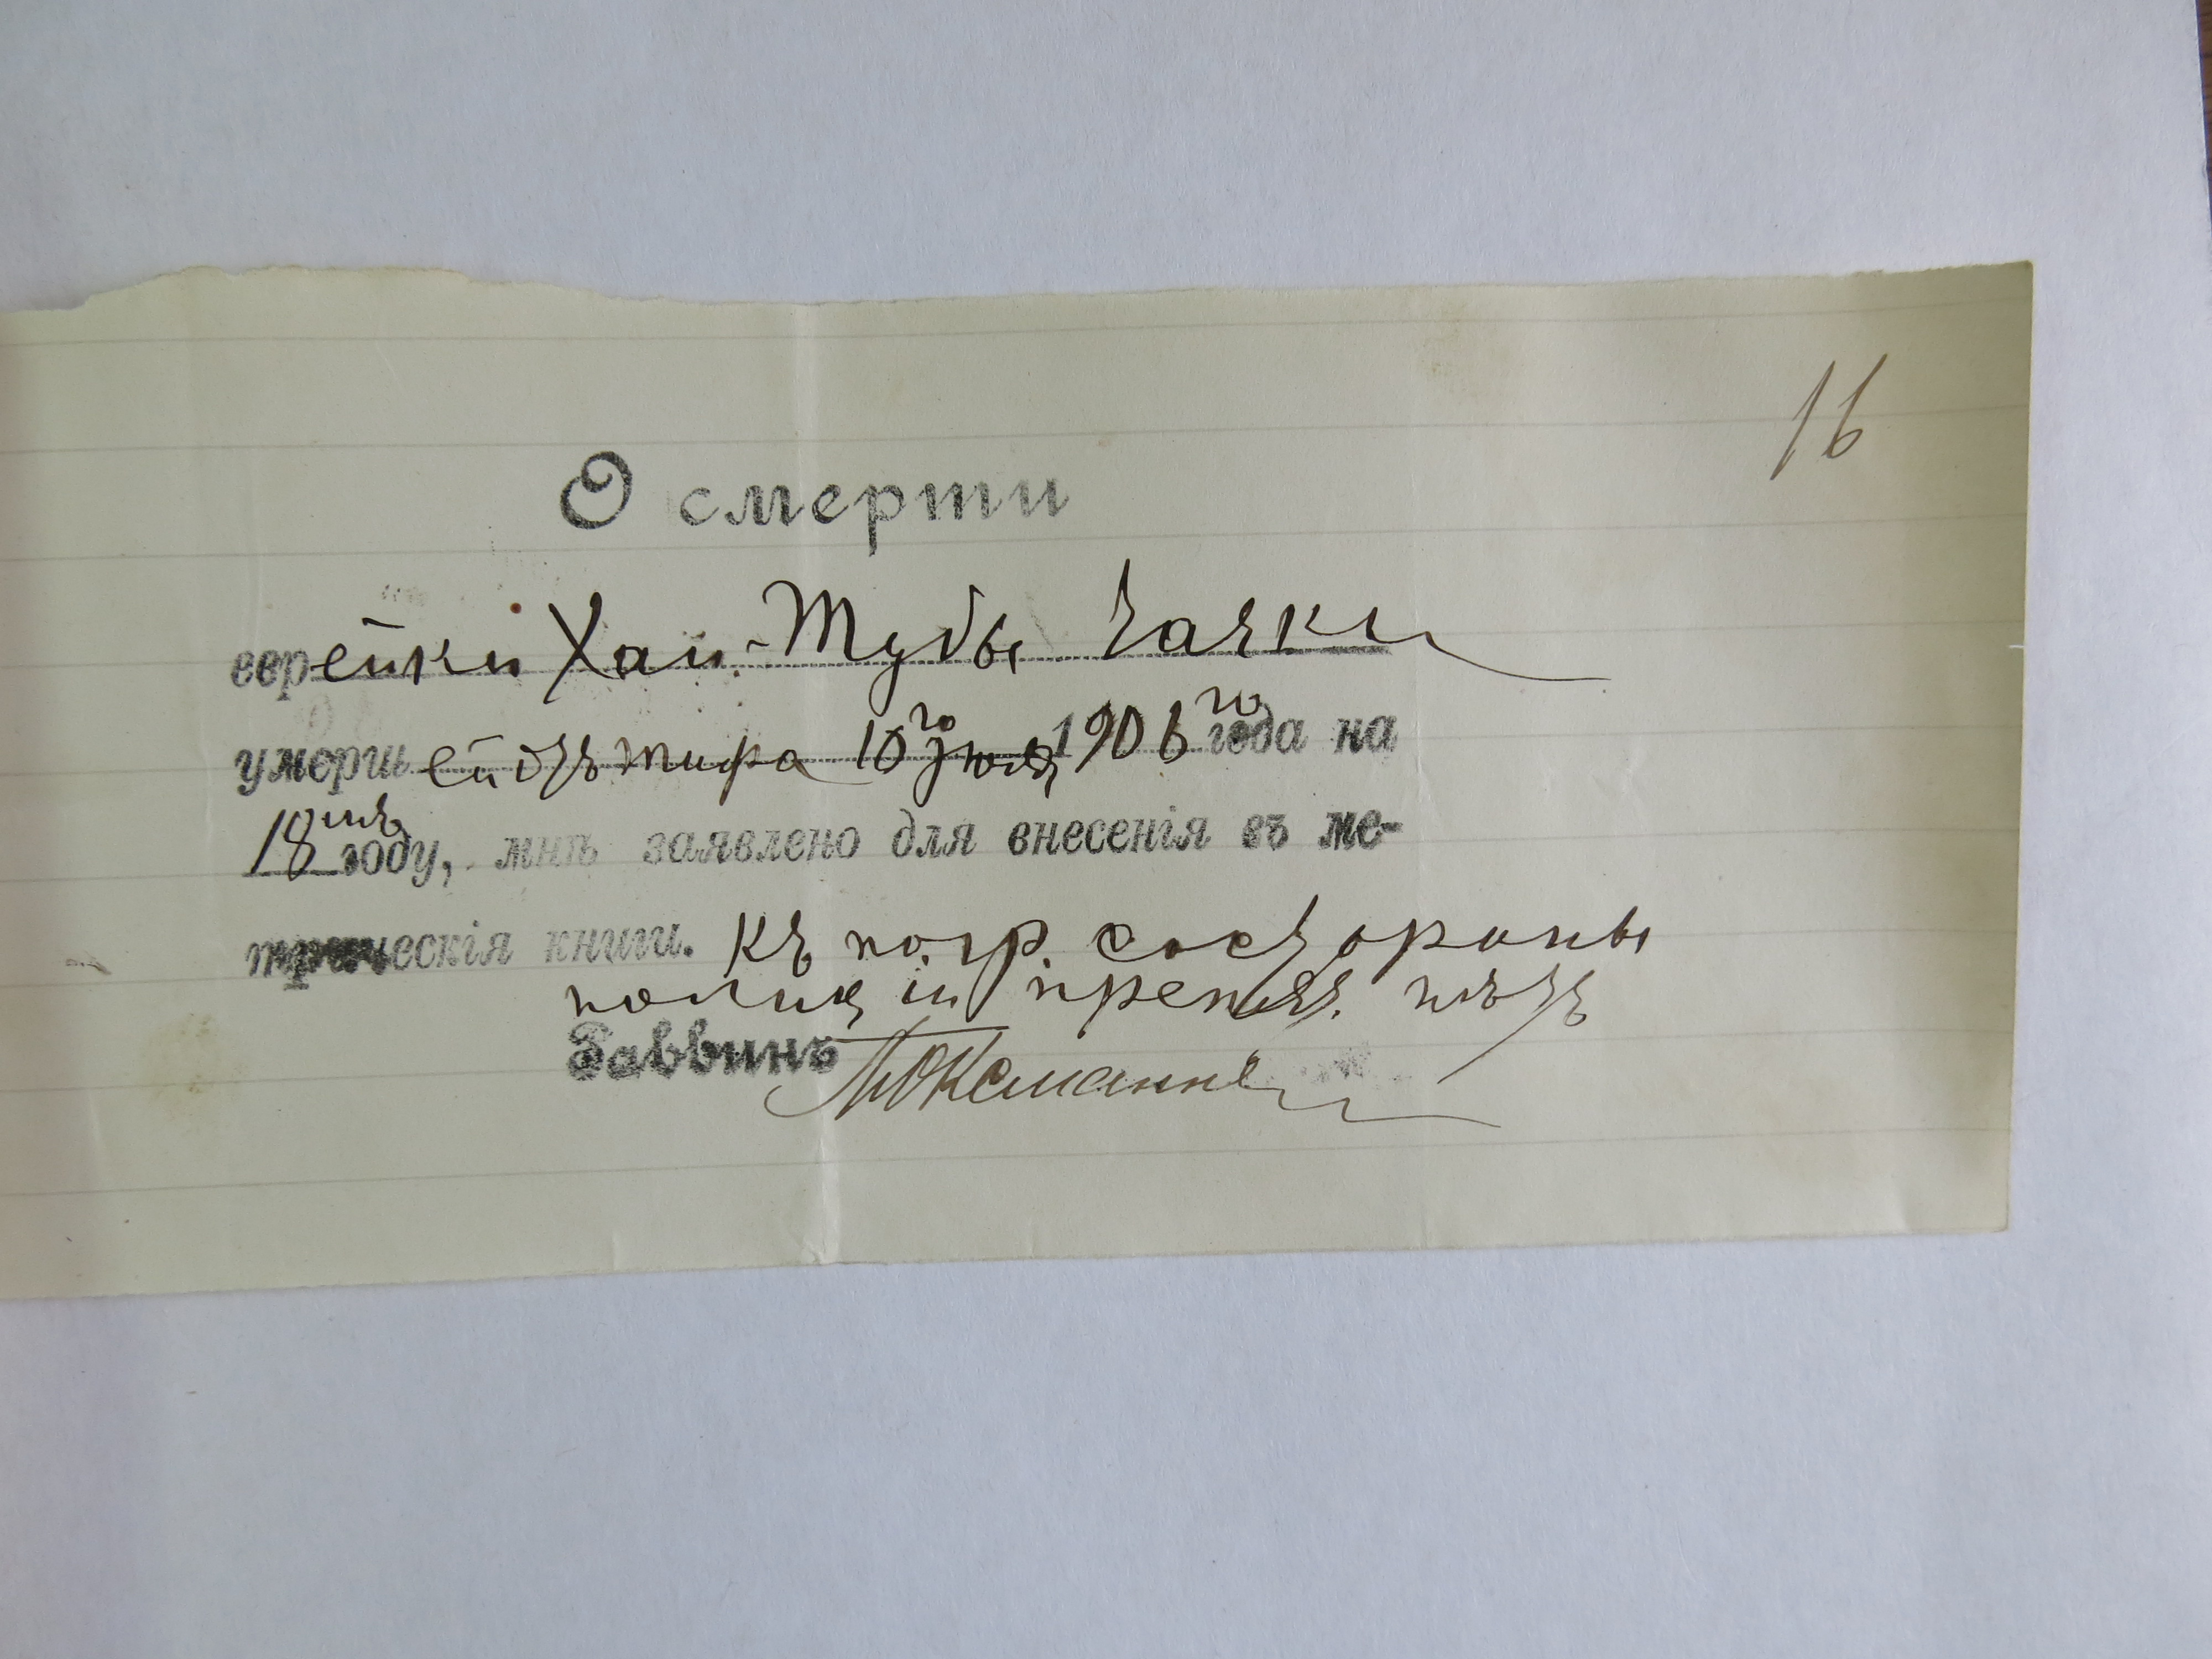 16
О смерти
еврейки Хаи-Тубы Чачки
умершей отъ тифа 10го Іюля 1906го года на
18мъ году, мнѣ заявлено для внесенія въ ме-
трическія книги. Къ погр. со стороны
полиціи препят. нѣтъ
Раввинъ